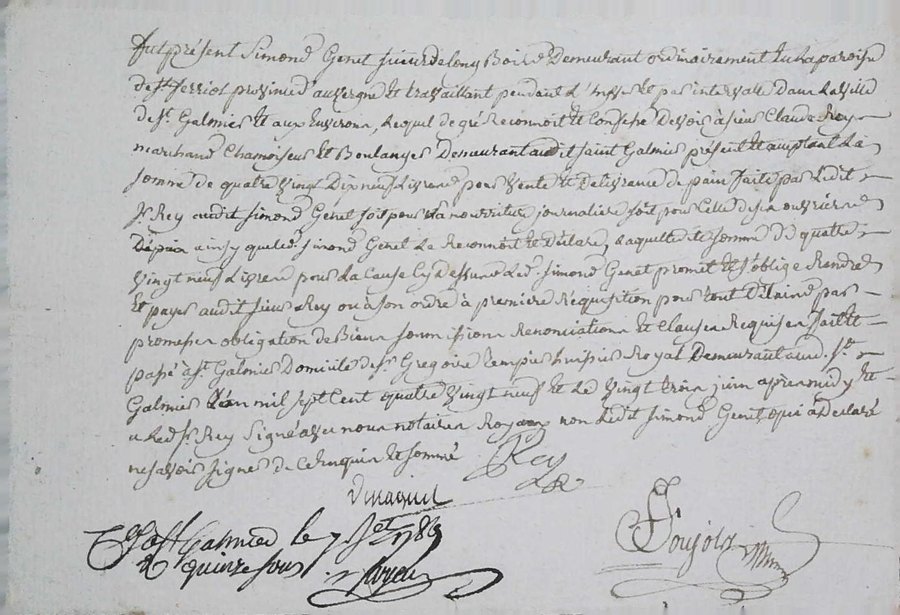 fut présent Simond Genet sieur de long Boird Demeurant ordinairement en la paroisse
de St ferriol province d'auvergne et travaillant pendant L'hyver et par intervalle Dans la ville
de St Galmier et aux Environs, Lequel de gré Reconnoit et Confesse Devoir à sieur Claude Rey
marchand Chamoiseur et Boulanger Demeurant audit Saint Galmier présent et acceptant La
somme de quatre Vingt Dix neuf Livres pour Vente et Delivrance de pain faite par Ledit
Sr. Rey audit Simond Genet soit pour sa nourriture journaliere soit pour Celle de ses ouvriers
ainsy que led. Simond Genet Le Reconnoit et Déclare, Laquelle de somme De quatre
Vingt neuf Livres pour La Cause Cy Dessus Led. Simond Genet promet et s'oblige Rendre
et payer audit sieur Rey ou à Son ordre à première Réquisition pour tout Délai par
promesse obligation de Biens soumissions Renonciations et Clauses Requises fait et
passé à St. Galmier Domicile de Sr. Gregoire tempier huissier Royal Demeurant aud. St.
Galmier L'an mil sept Cent quatre Vingt neuf et Le Vingt trois juin après midy et
a Led. Sr. Rey Signé avec nous notaires Royaux non Ledit Simond Genet qui a Déclaré
ne savoir signer de Ce Enquis et sommé
Rey
St Galmier le 7 1789
quinze sous